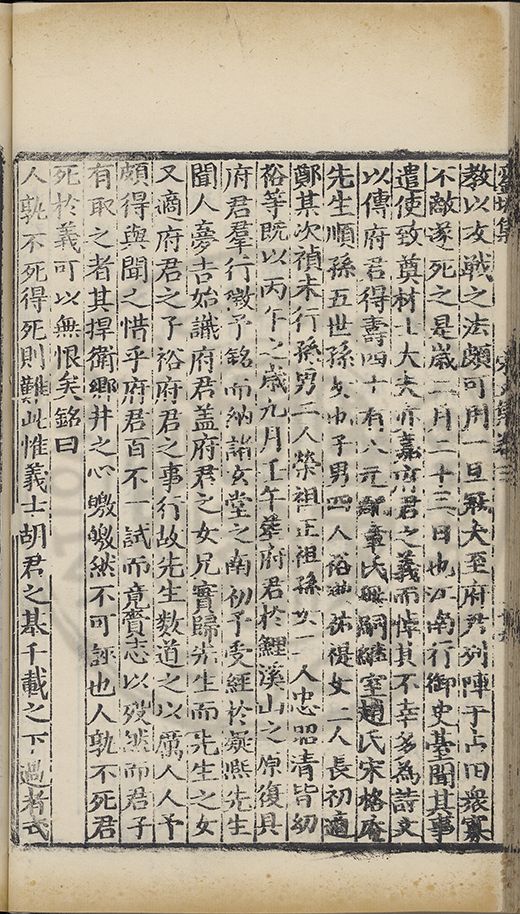 教以攻戰之法頗可用一旦冦大至府君列陣于古田衆寡
不敵遂死之是歲二月二十三日也江南行御史臺聞其事
遣使致奠材士大夫亦嘉府君之義而悼其不幸多為詩文
以傳府君得壽四十有八元配章氏無嗣繼室趙氏宋格庵
先生順孫五世孫女也子男四人裕禎女二人長初適
鄭某次禎未行孫男二人榮祖正祖孫女一人忠昭清皆幼
裕等既以丙午之歲九月壬午葬府君於鯉溪山之原復具
府君羣行徵予銘而納諸玄堂之南初予受經於凝熙先生
聞人夢吉始識府君盖府君之女兄實歸先生而先生之女
又適府君之子裕府君之事行故先生數道之以厲人人予
頗得與聞之惜乎府君百不一試而竟賫志以歿然而君子
有取之者其捍衛鄉井之心曒曒然不可誣也人孰不死君
死於義可以無恨矣銘曰
人孰不死得死則難此惟義士胡君之墓千載之下過者式